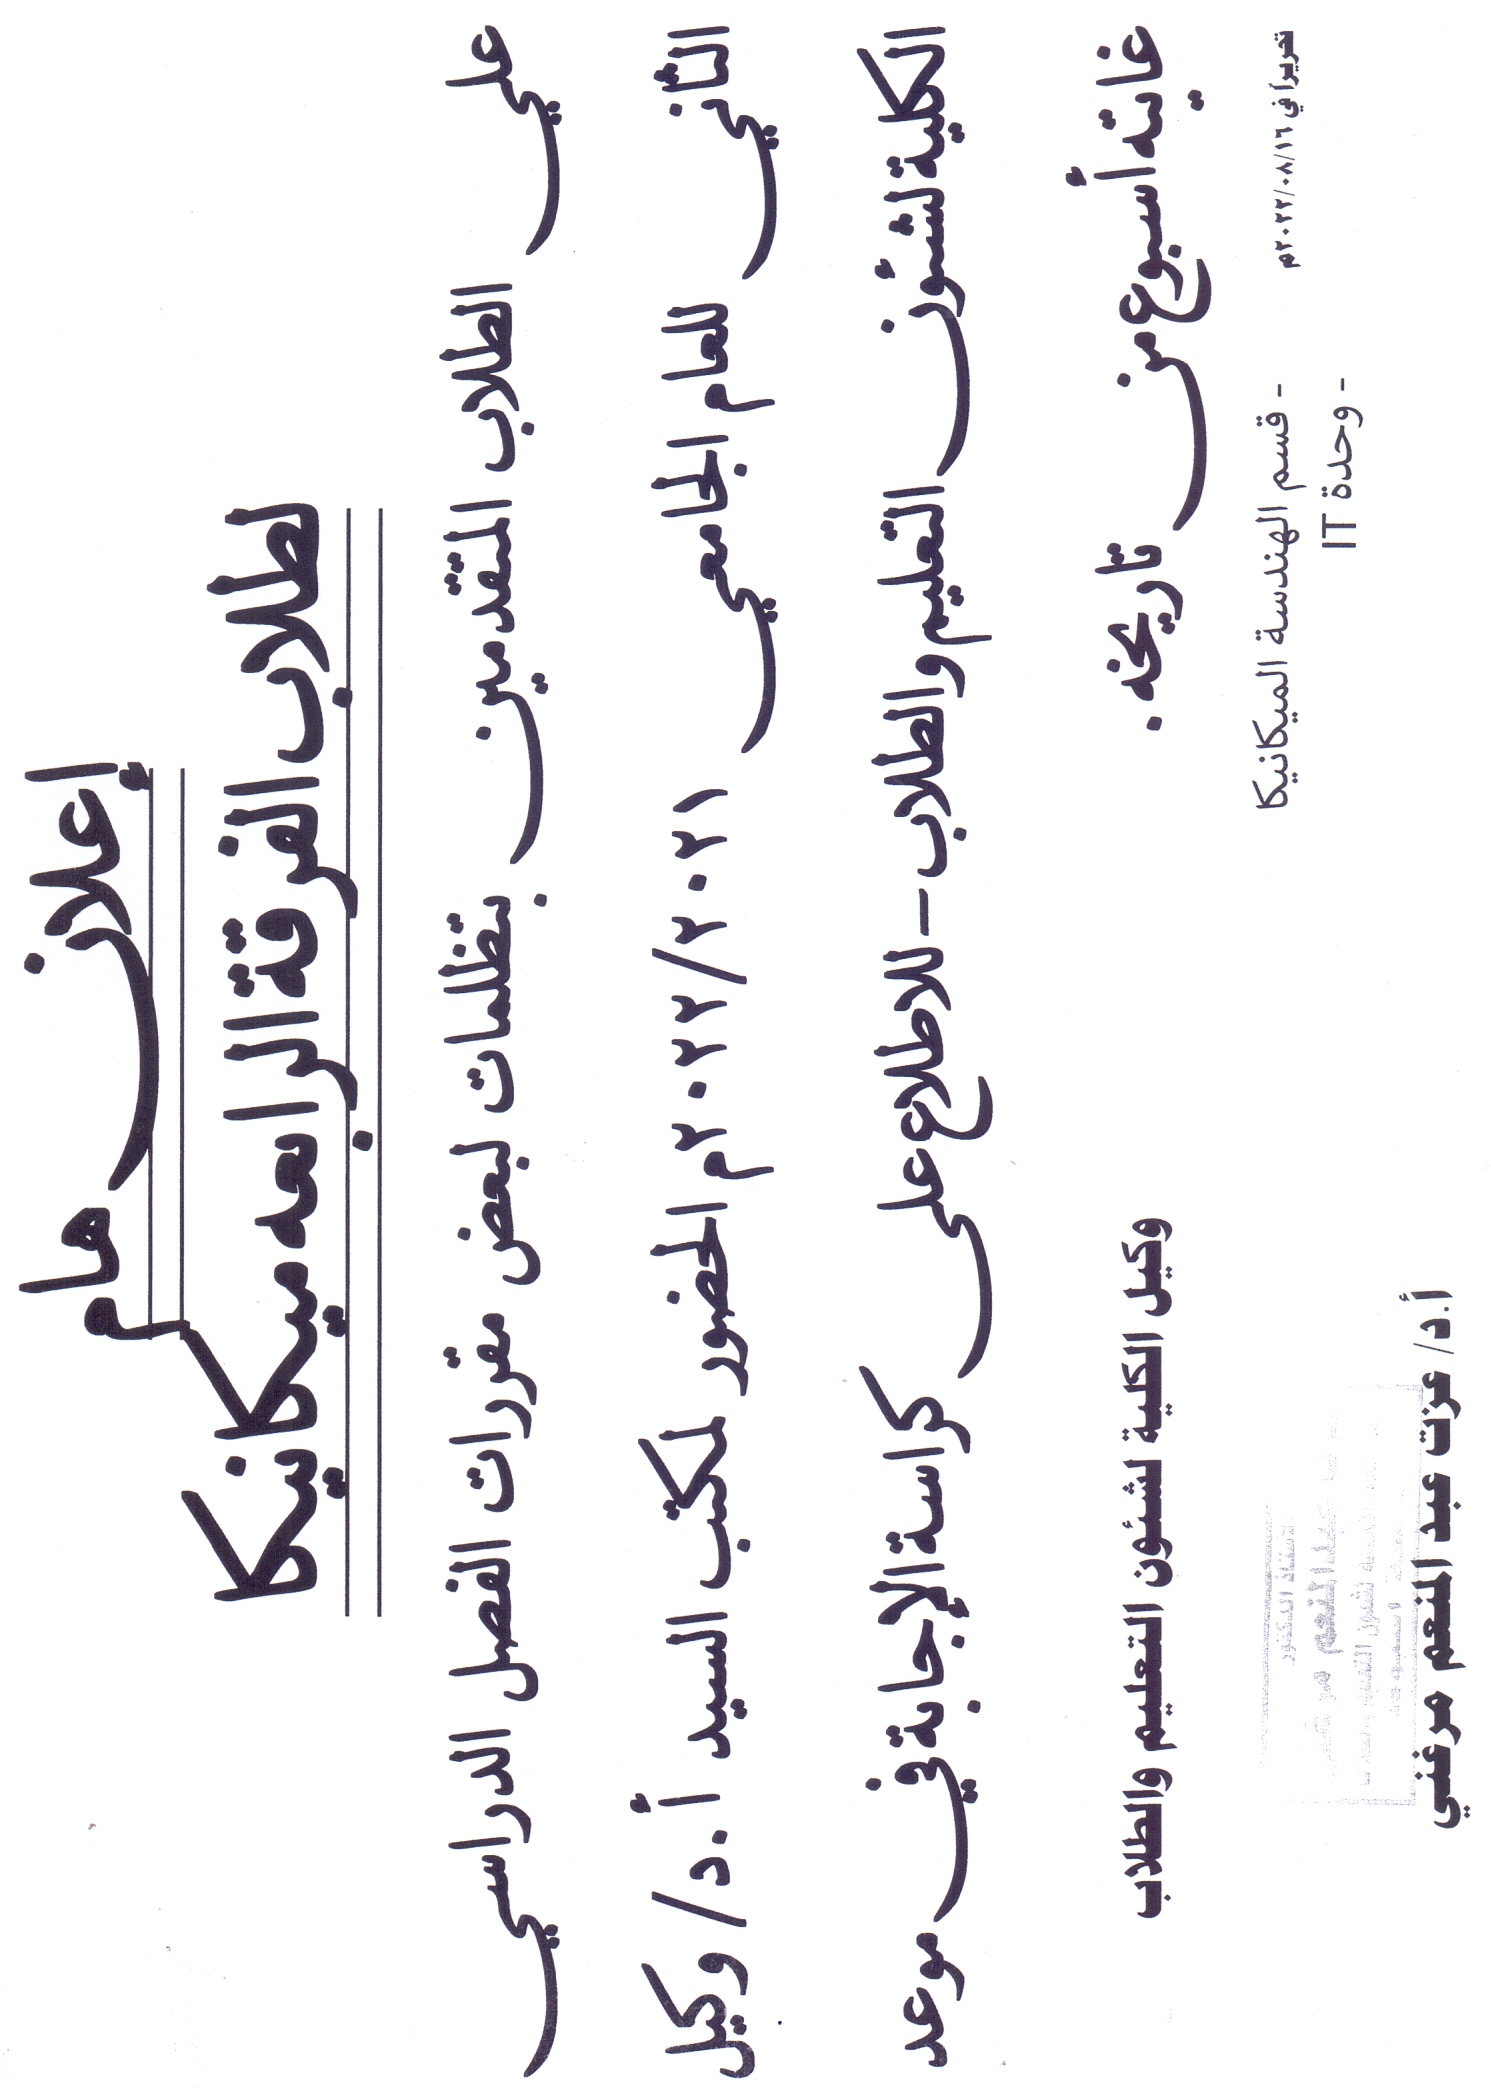 إعلان هام
لطلاب الفرقة الرابعه ميكانيكا
علي الطلاب المتقدمين بتظلمات لبعض مقررات الفصل الدراسي
الثاني للعام الجامعي ٢٠٢٢/٢٠٢١م الحضور لمكتب السيد أ.د/ وكيل
الكلية لشئون التعليم والطلاب – للاطلاع على كراسة الإجابة في موعد
غايته أسبوع من تاريخه.
وكيل الكلية لشئون التعليم والطلاب
تحريراً في ٢٠٢٢/٠٨/١٦م
- قسم الهندسة الميكانيكا
- وحدة IT
الأستاذ الدكتور
أ.د/ عزت عبد المنعم مرغني